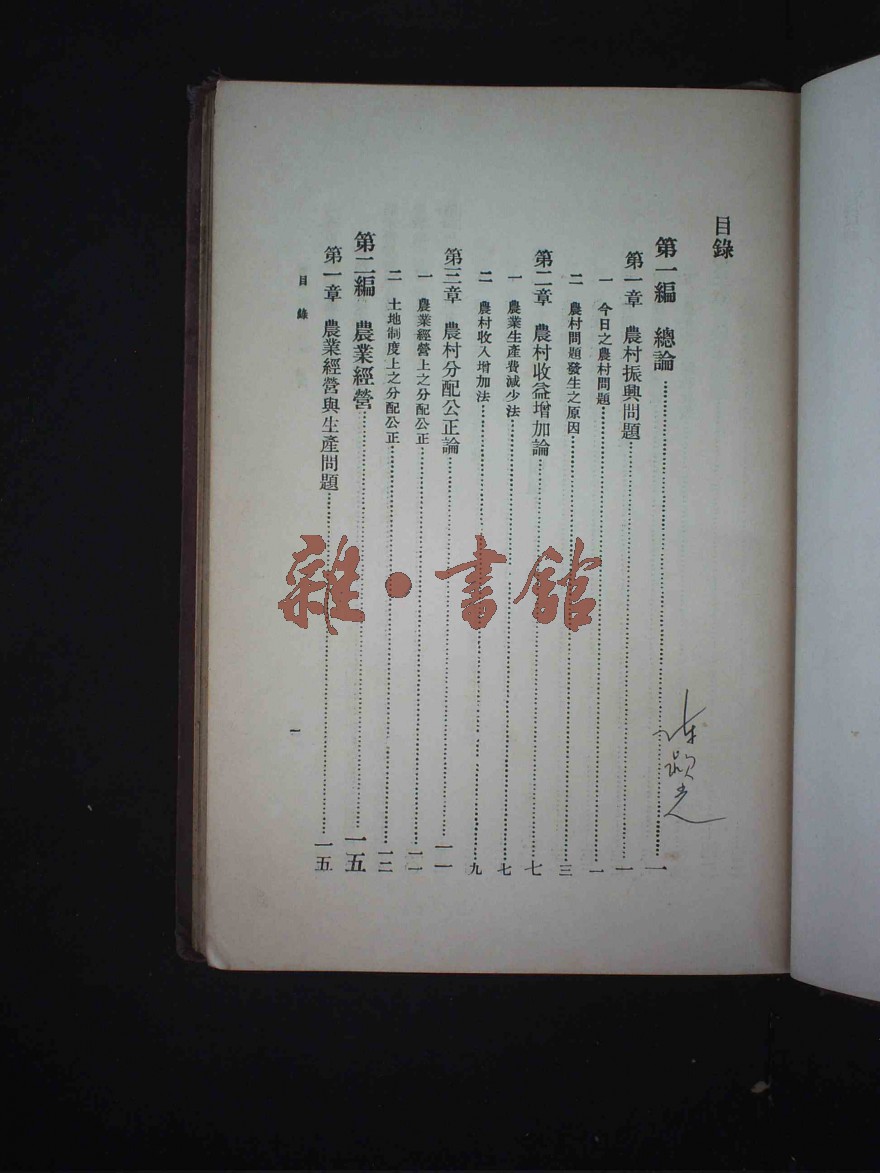 目錄
第一編 總論 一
第一章 農村振興問題 一
一 今日之農村問題 一
二 農村問題發生之原因 三
第二章 農村收益增加論 七
一 農業生產費減少法 七
二 農村收入增加法 九
第三章 農村分配公正論 一一
一 農業經營上之分配公正 一一
二 土地制度上之分配公正 一二
第二編 農業經營 一五
第一章 農業經營與生產問題 一五
目錄 一
雜·書館